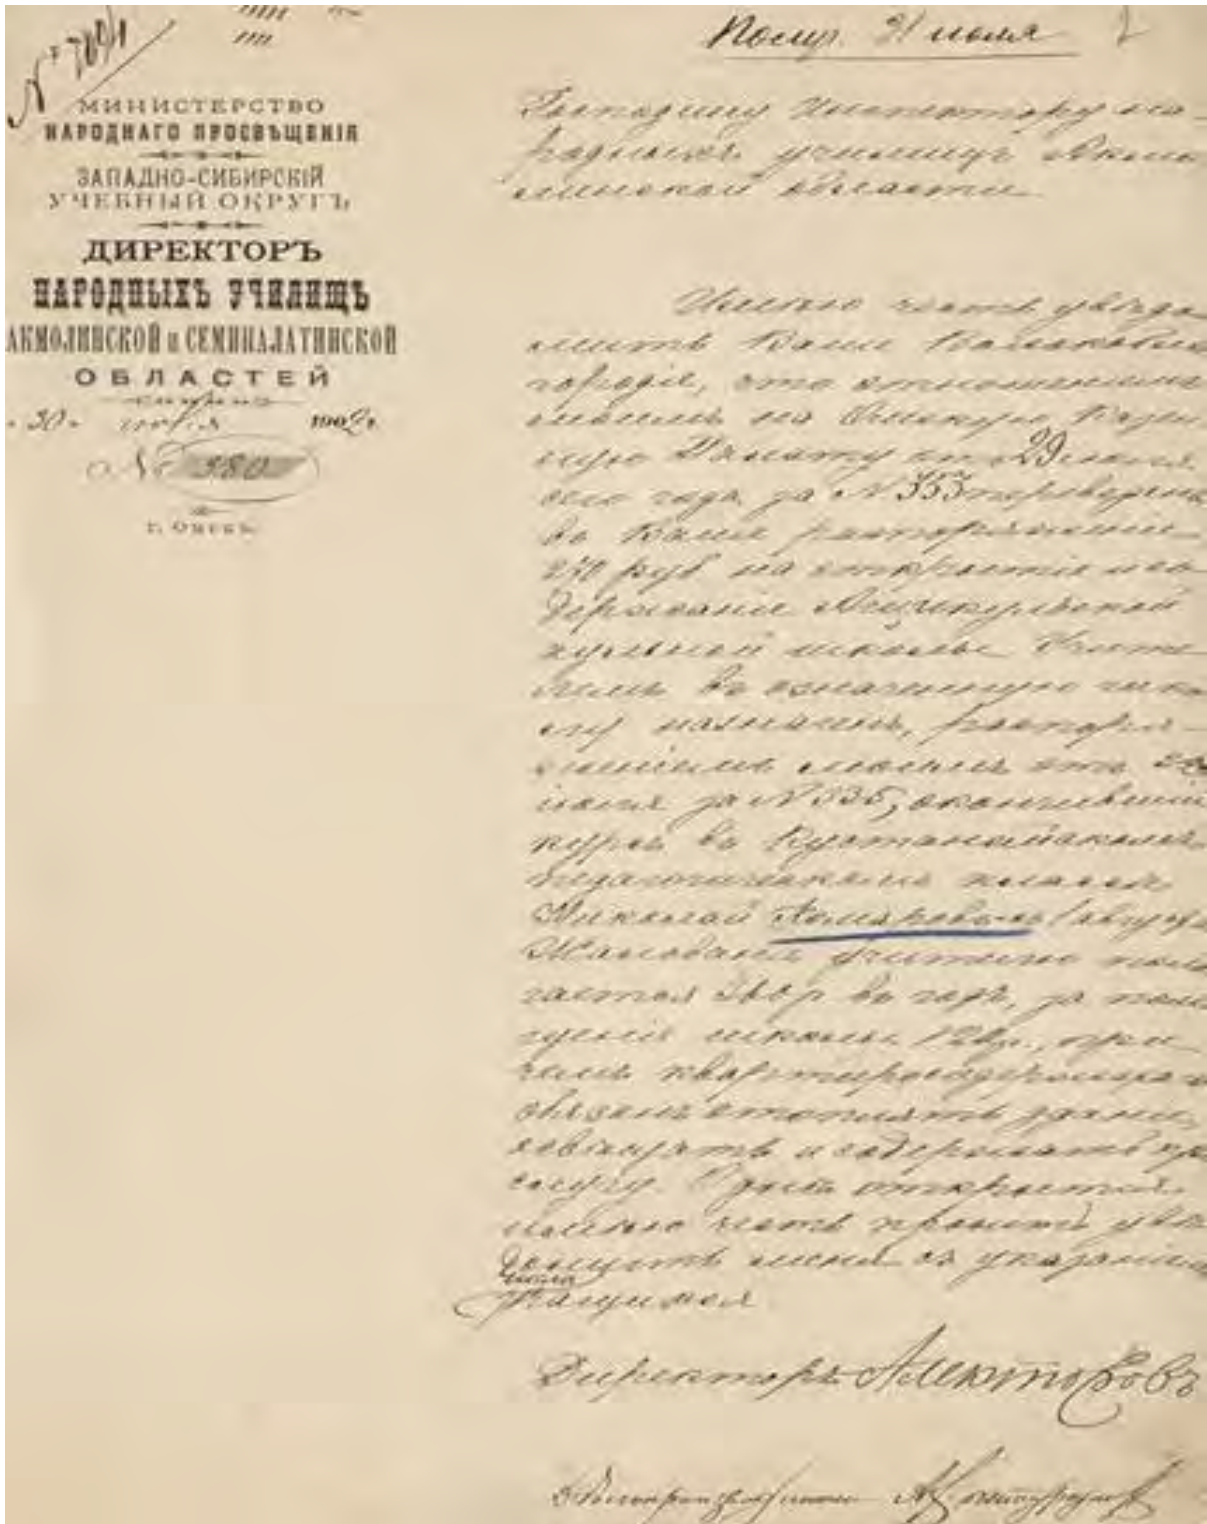 Получ. 31 июля
МИНИСТЕРСТВО
НАРОДНАГО ПРОСВѢЩЕНІЯ
ЗАПАДНО-СИБИРСКІЙ
УЧЕБНЫЙ ОКРУГЪ
ДИРЕКТОРЪ
НАРОДНЫХЪ УЧИЛИЩЪ
АКМОЛИНСКОЙ и СЕМИПАЛАТИНСКОЙ
ОБЛАСТЕЙ
30 1902 г.
№ 380
г. Омскъ.
Господину Инспектору на-
родныхъ училищъ Акмо
линской области
Имѣю честь увѣдо
мить Ваше Высокобла
городіе, что отношеніемъ
моимъ на Омскую Казен
ную Палату отъ 29
сего года за № 353 переведены
въ Ваше распоряженіе
240 руб на открытіе и со
держаніе
аульной школы Учите
лемъ въ означенную шко
лу назначенъ, распоря-
женіемъ моимъ отъ
за № 335, окончившій
курсъ въ Кустанайскомъ
педагогическомъ классѣ
Николай
Жалованья учителю пола
гается 360 р въ годъ, за помѣ
щеніе школы 120 р., при
чемъ квартиросодержатель
обязанъ отоплять зданіе,
освѣщать и содержать пр
слугу. О днѣ открытія
имѣю честь просить увѣ
домить меня съ указаніемъ
числа
учащихся
Директоръ Алекторовъ
Дѣлопроизводитель